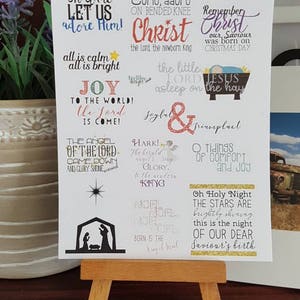 LET US
adore Him!
ON BENDED KNEE
Christ
the Lord, the newborn King
Remember
Christ
our Saviour
was born on
CHRISTMAS DAY
all is calm
all is bright
JOY
TO THE WORLD!
the Lord
IS COME!
the little
LORD JESUS
asleep on the hay
Joyful
&
triumphant
THE ANGEL
OF THE LORD
CAME DOWN
AND GLORY SHONE
HARK!
the herald
GLORY
to the newborn
KING
O tidings
of comfort
and joy
Oh Holy Night
THE STARS ARE
brightly shining
this is the night
OF OUR DEAR
Saviour's birth
BORN IS THE